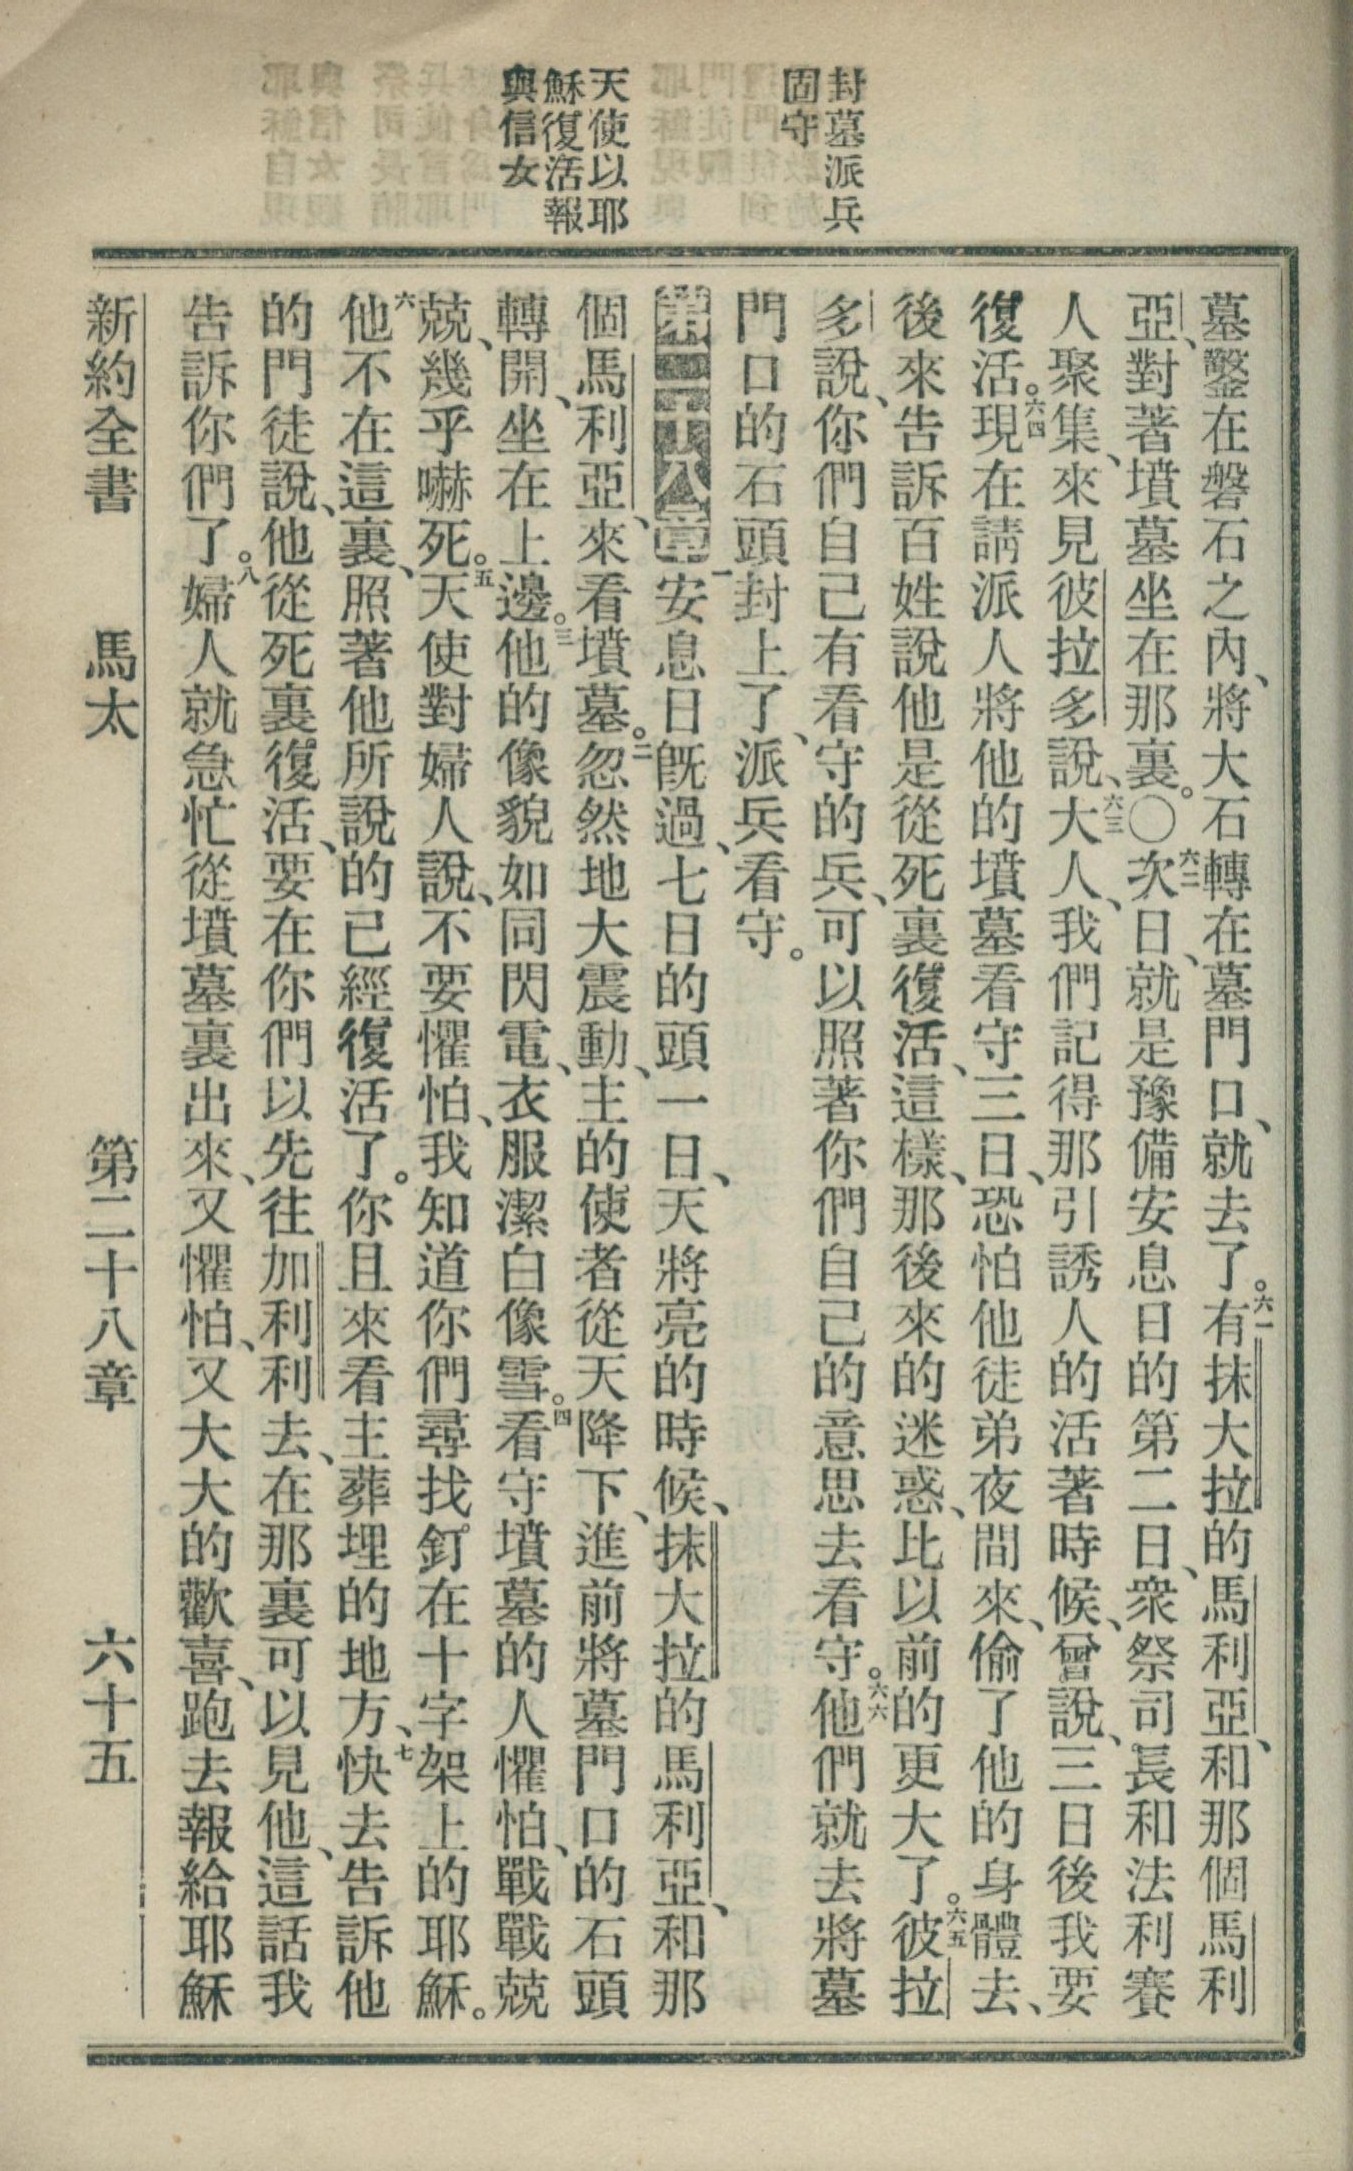 封墓派兵
固守
天使以耶
穌復活報
與信女
墓鑿在磐石之內、將大石轉在墓門口、就去了。六一有抹大拉的馬利亞、和那個馬利
亞、對著墳墓坐在那裏。〇六二次日、就是豫備安息日的第二日、衆祭司長和法利賽
人聚集、來見彼拉多說、六三大人、我們記得那引誘人的活著時候、曾說、三日後我要
復活。六四現在請派人將他的墳墓看守三日、恐怕他徒弟夜間來、偷了他的身體去、
後來告訴百姓說他是從死裏復活、這樣、那後來的迷惑、比以前的更大了。六五彼拉
多說、你們自己有看守的兵、可以照著你們自己的意思去看守。六六他們就去將墓
門口的石頭封上了、派兵看守。
第二十八章一安息日旣過、七日的頭一日、天將亮的時候、抹大拉的馬利亞、和那
個馬利亞、來看墳墓。二忽然地大震動、主的使者從天降下、進前將墓門口的石頭
轉開、坐在上邊。三他的像貌如同閃電、衣服潔白像雪。四看守墳墓的人懼怕、戰戰兢
兢、幾乎嚇死。五天使對婦人說、不要懼怕、我知道你們尋找釘在十字架上的耶穌。
六他不在這裏、照著他所說的已經復活了。你且來看主葬埋的地方、七快去告訴他
的門徒說、他從死裏復活、要在你們以先往加利利去、在那裏可以見他、這話我
告訴你們了。八婦人就急忙從墳墓裏出來、又懼怕、又大大的歡喜、跑去報給耶穌
新約全書　馬太　第二十八章　六十五